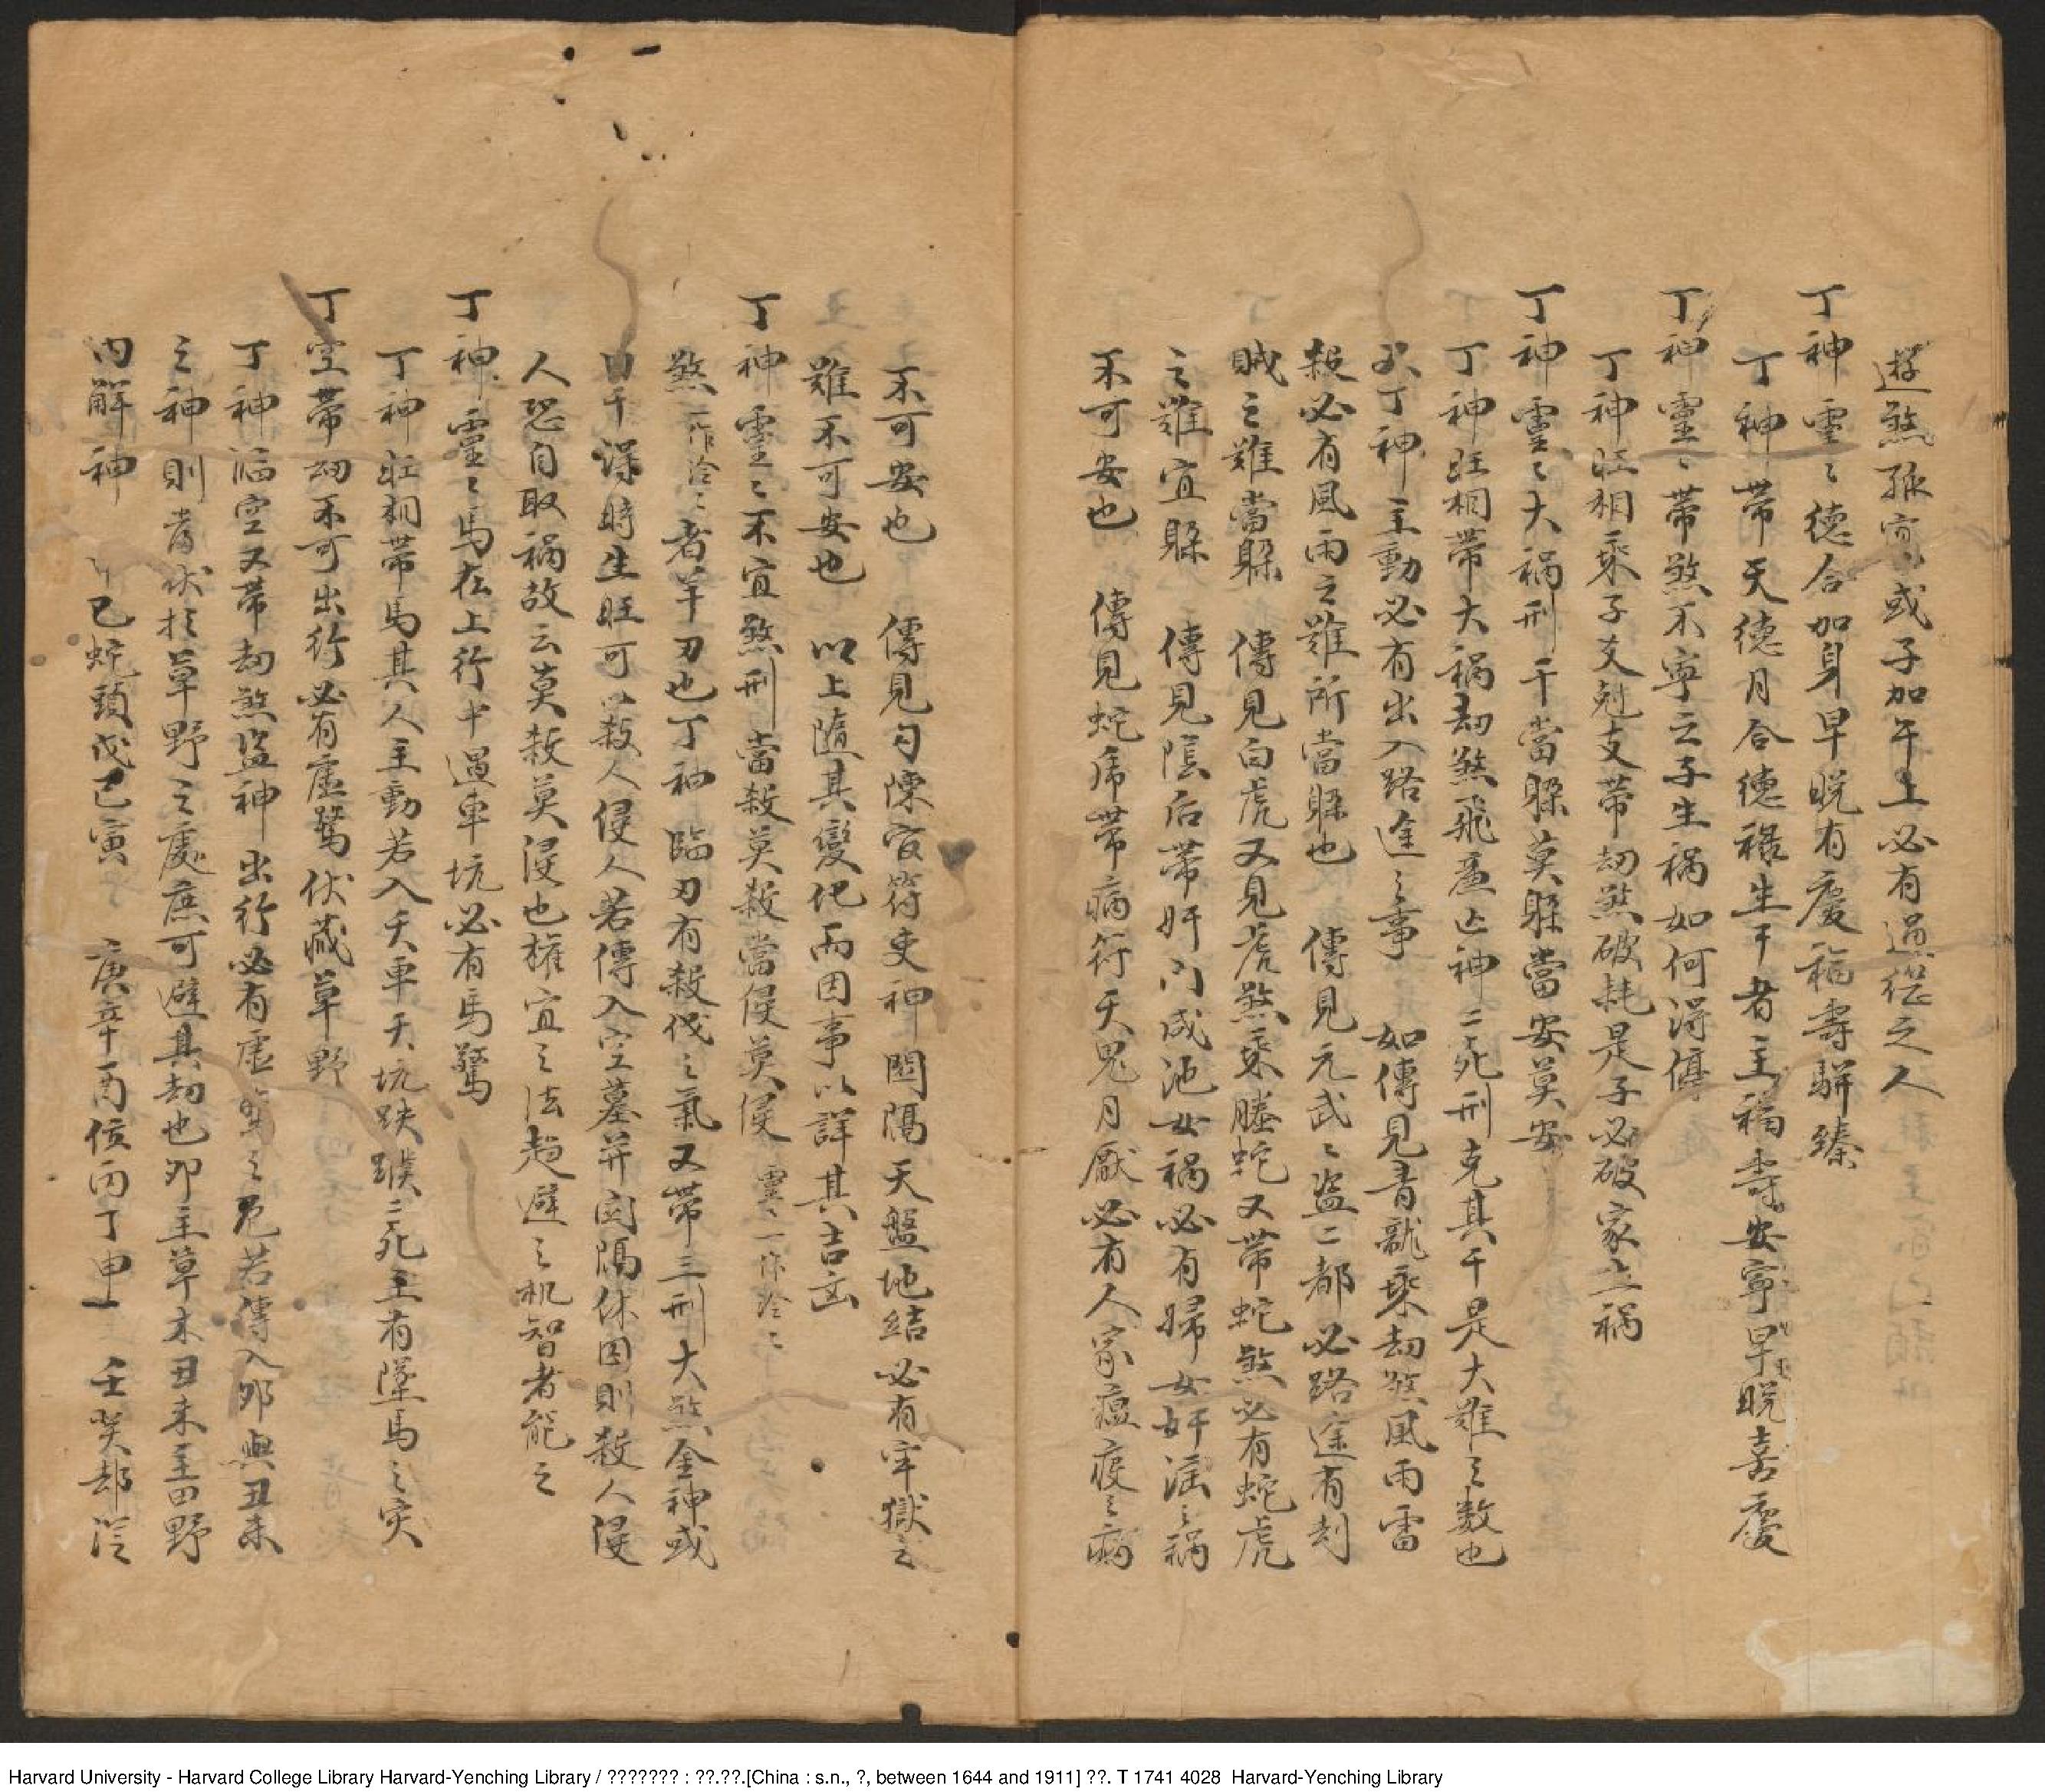 遊煞孤寡以或子加午上必有過從之人
丁神靈〻德合加身早晚有慶福壽駢臻
丁神帶天德月合德祿生干者主福壽安寧早晚喜慶
丁神靈〻帶煞不寧云子生禍如何得停
丁神旺相乘子支尅支帶刼煞破耗是子必破家立禍
丁神靈〻大禍刑干當躲莫躲當安莫安
丁神旺相帶大禍刼煞飛廉亡神二死刑克其干是大難之数也
丁神主動必有出入路途之事 如傳見青龍乘刼煞風雨雷
殺必有風雨之難所當躲也 傳見元武〻盜二都必路途有刦
賊之難當躲 傳見白虎又見虎煞乘螣蛇又帶蛇煞必有蛇虎
之難宜躲 傳見陰后帶奸门咸池女禍必有婦女奸淫之禍
不可安也 傳見蛇虎帶病符天鬼月厭必有人家瘟疫之病
不可安也 傳見勾陳官符吏神關隔天盤地結必有牢獄之
難不可安也 以上隨其變化而因事以詳其吉凶
丁神靈〻不宜煞刑當殺莫殺當侵莫侵 靈〻一作泠〻
煞一作泠〻者羊刃也丁神臨刃有殺伐之氣又帶三刑大煞金神或
日干課時生旺可以殺人侵人若傳入空墓并関隔休囚則殺人侵
人恐自取禍故云莫殺莫侵也權宜之法趨避之机智者能之
丁神靈〻馬在上行中遇車坑必有馬驚
丁神旺相帶馬其人主動若入天車天坑跌蹼二死主有墜馬之灾
丁空帶刼不可出行必有虛驚伏藏草野
丁神臨空又帶刼煞盜神出行必有虛驚之危若傳入卯與丑未
之神則當伏扵草野之處庶可避其刼也卯主草木丑未主田野
内解神 巳蛇頭戊巳寅 庚辛酉位丙丁申 壬癸却從